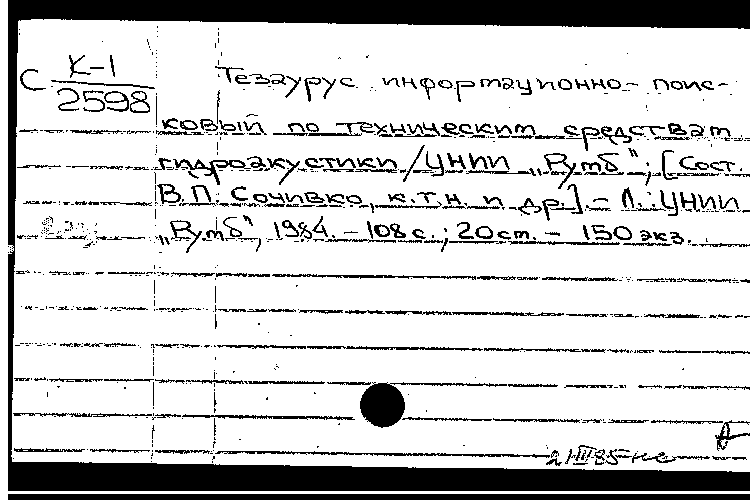 С К-1
2598
Тезаурус информационно-поис-
ковый по техническим средствам
гидроакустики/ЦНИИ „Румб"; [Сост.
В.П. Сочивко, к.т.н. и др.]. – Л.: ЦНИИ
„Румб", 1984. – 108 с.; 20 см. – 150 экз.
2 экз
21 III 85